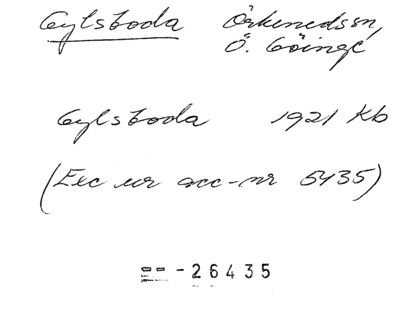 Gylsboda Örkeneds sn,
Ö. Göinge
Gylsboda 1921 Kb
(Exc ur acc-nr 5435)
-26435